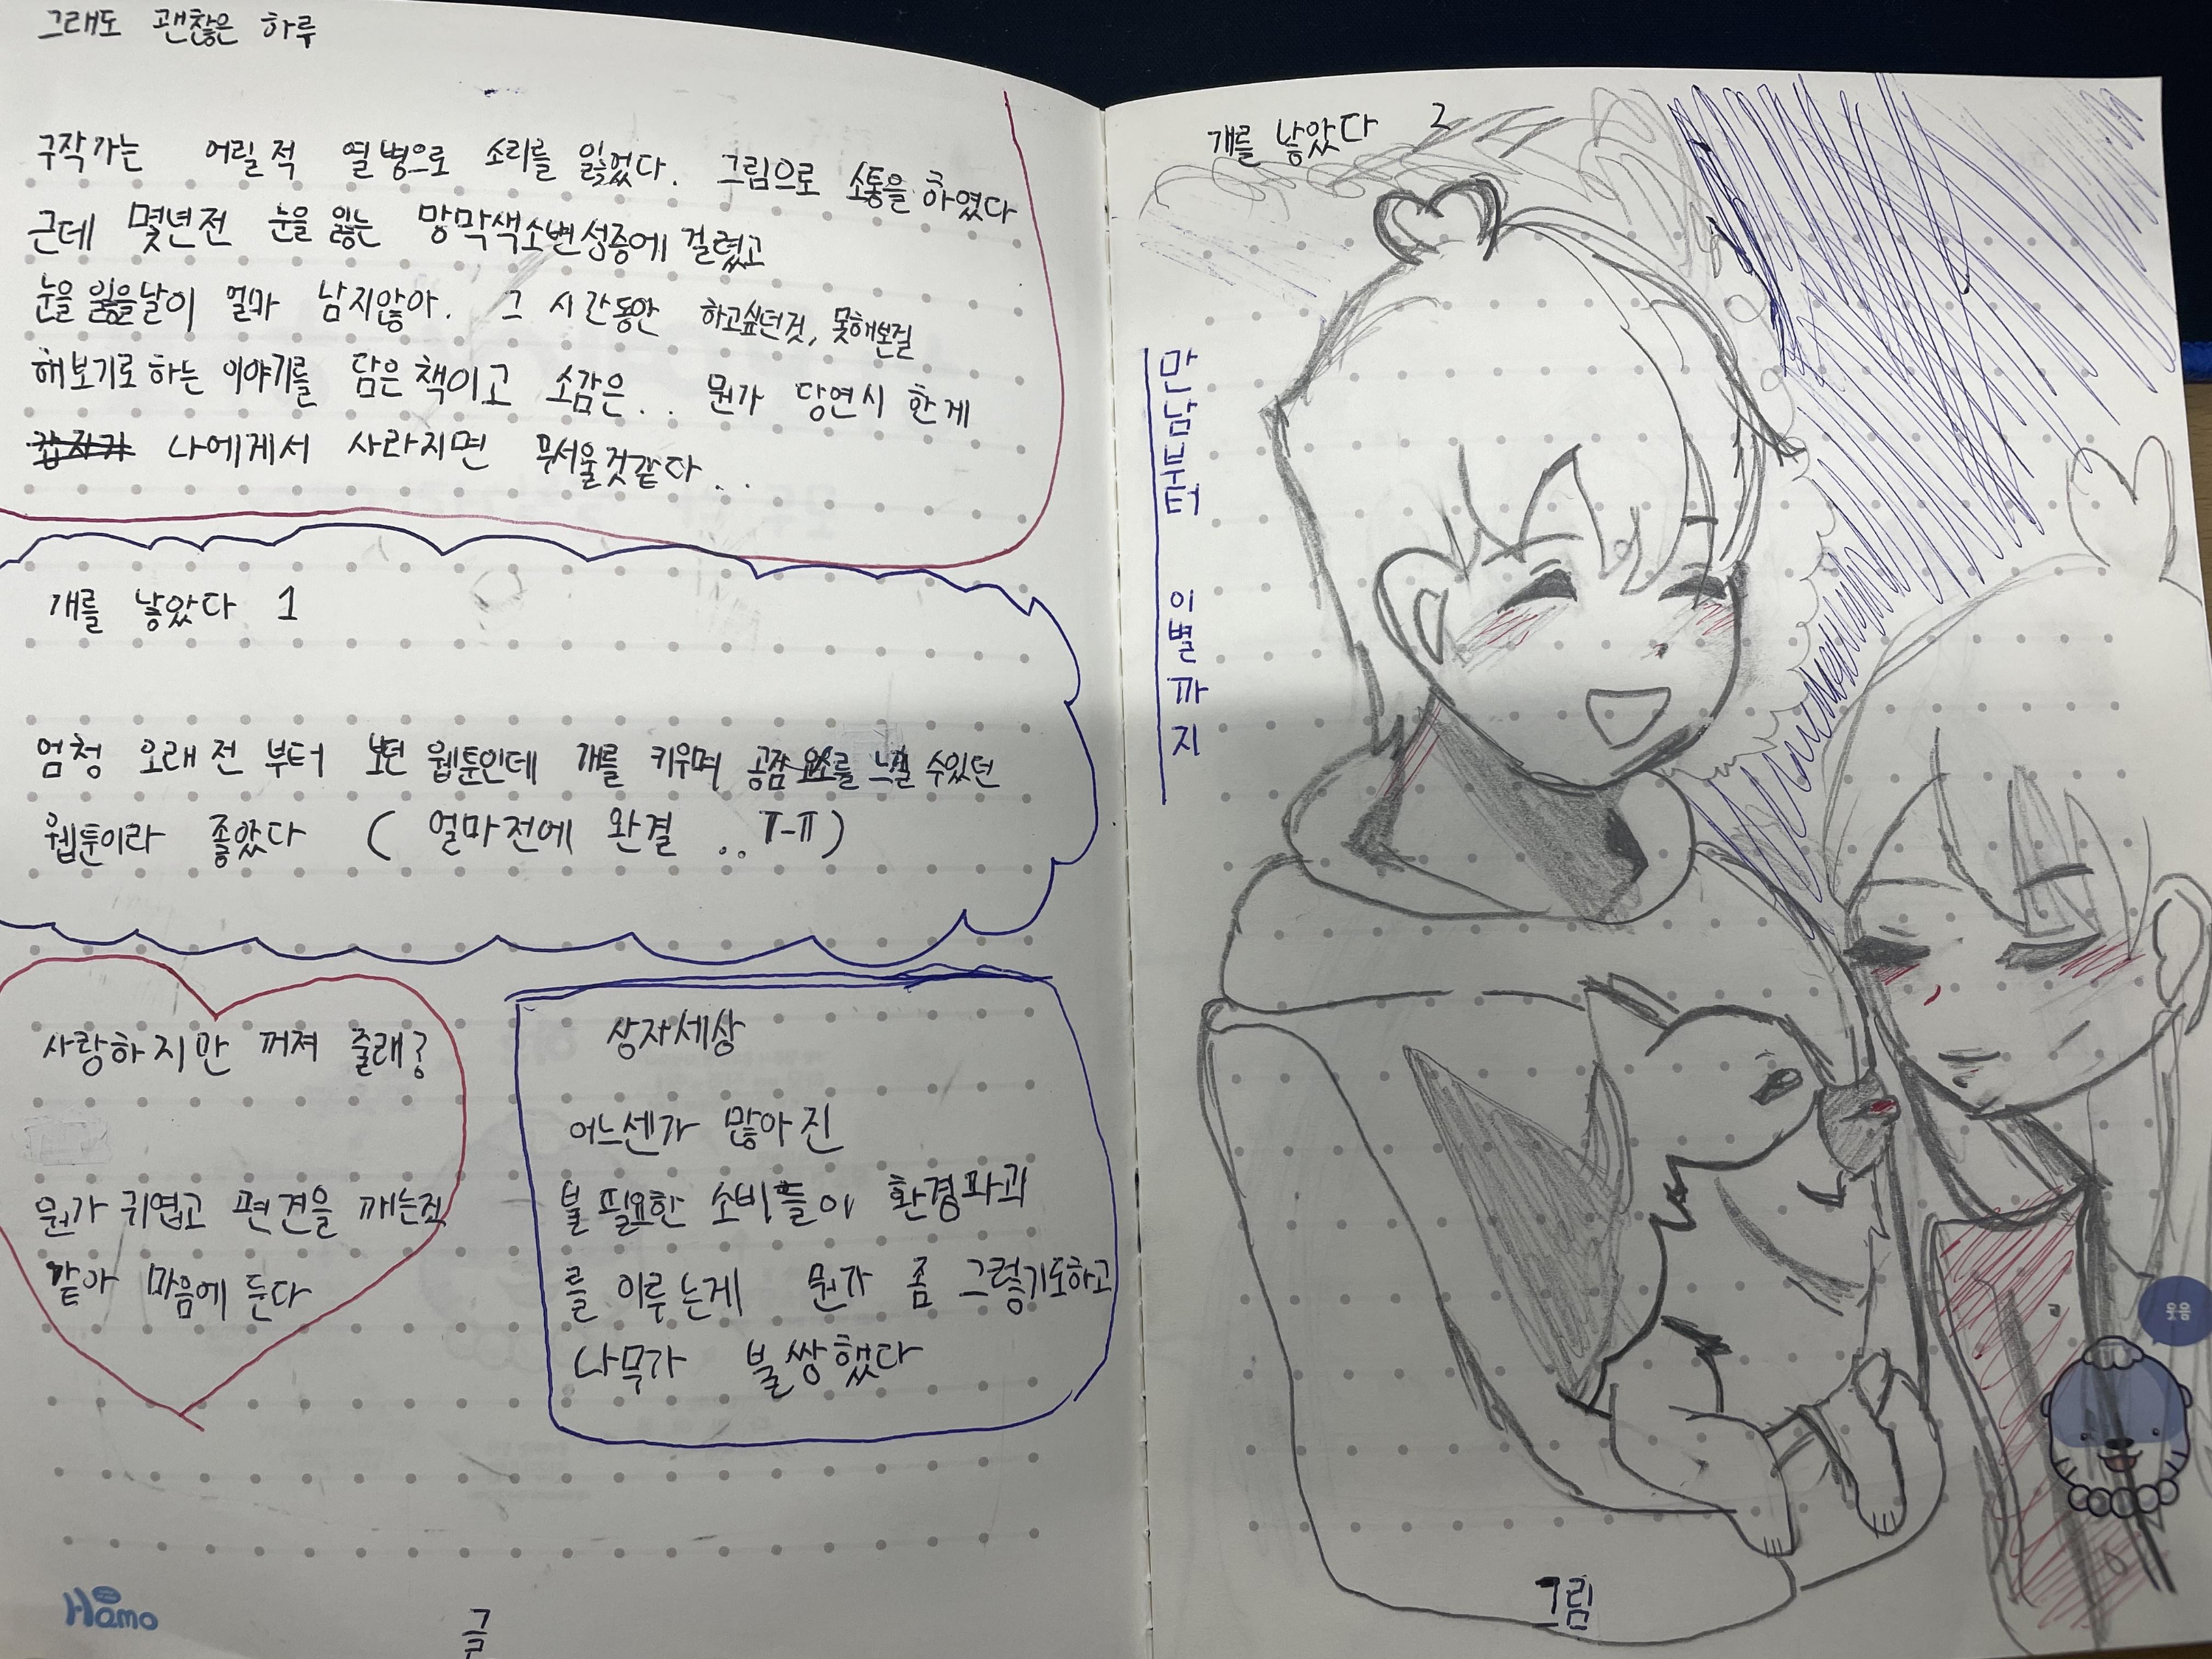 그래도 괜찮은 하루
구작가는 어릴적 열병으로 소리를 잃었다. 그림으로 소통을 하였다
근데 몇년전 눈을 잃는 망막색소변성증에 걸렸고
눈을 잃을날이 얼마 남지않아. 그 시간동안 하고싶던것, 못해본걸
해보기로 하는 이야기를 담은 책이고 소감은.. 뭔가 당연시 한게
갑자기 나에게서 사라지면 무서울것같다..
개를 낳았다 1
엄청 오래전 부터 보던 웹툰인데 개를 키우며 공감 요소를 느낄 수있던
웹툰이라 좋았다 ( 얼마전에 완결 .. ㅠ-ㅠ)
사랑하지만 꺼져 줄래?
뭔가 귀엽고 편견을 깨는것
같아 마음에 든다
상자세상
어느센가 많아진
불필요한 소비들이 환경파괴
를 이루는게 뭔가 좀 그렇기도하고
나무가 불쌍했다
Hamo
글
개를 낳았다 2
만남부터 이별까지
웃음
그림